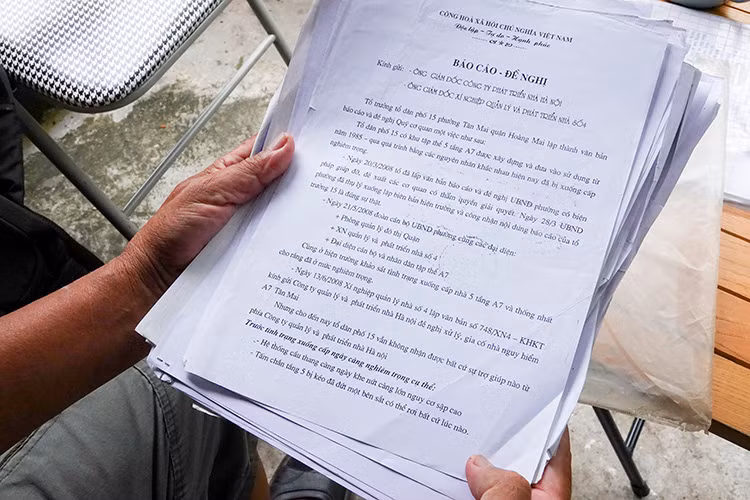 CỘNG HOÀ XÃ HỘI CHỦ NGHĨA VIỆT NAM
Độc lập - Tự do - Hạnh phúc
BÁO CÁO - ĐỀ NGHỊ
Kính gửi: - ÔNG GIÁM ĐỐC CÔNG TY PHÁT TRIỂN NHÀ HÀ NỘI
- ÔNG GIÁM ĐỐC XÍ NGHIỆP QUẢN LÝ VÀ PHÁT TRIỂN NHÀ SỐ4
Tổ trưởng tổ dân phố 15 phường Tân Mai quận Hoàng Mai lập thành văn bản
báo cáo và đề nghị Quý cơ quan một việc như sau:
Tổ dân phố 15 có khu tập thể 5 tầng A7 được xây dựng và đưa vào sử dụng từ
năm 1985 – qua quá trình bằng các nguyên nhân khác nhau hiện nay đã bị xuống cấp
nghiêm trọng.
- Ngày 20/3/2008 tổ đã lập văn bản báo cáo và đề nghị UBND phường có biện
pháp giúp đỡ, đề xuất các cơ quan có thẩm quyền giải quyết. Ngày 28/3 UBND
phường đã thụ lý xuống lập biên bản hiện trường và công nhận nội dung báo cáo của tổ
trưởng 15 là đúng sự thật.
- Ngày 21/5/2008 đoàn cán bộ UBND phường cùng các đại diện:
+ Phòng quản lý đô thị Quận
+ XN quản lý và phát triển nhà số 4
+ Đại diện cán bộ và nhân dân tập thể A7
Cùng ở hiện trường khảo sát tình trạng xuống cấp nhà 5 tầng A7 và thống nhất
cho rằng đã ở mức nghiêm trọng.
- Ngày 13/6/2008 Xí nghiệp quản lý nhà số 4 lập văn bản số 748/XN4 – KHKT
kính gửi Công ty quản lý và phát triển nhà Hà Nội đề nghị xử lý, gia cố nhà nguy hiểm
A7 Tân Mai
Nhưng cho đến nay tổ dân phố 15 vẫn không nhận được bất cứ sự trợ giúp nào từ
phía Công ty quản lý và phát triển nhà Hà Nội
Trước tình trạng xuống cấp ngày càng nghiêm trọng cụ thể:
- Hệ thống cầu thang càng ngày khe nứt càng lớn nguy cơ sập cao
- Tấm chắn tầng 5 bị kéo đã dứt một bên sắt có thể rơi bất cứ lúc nào.